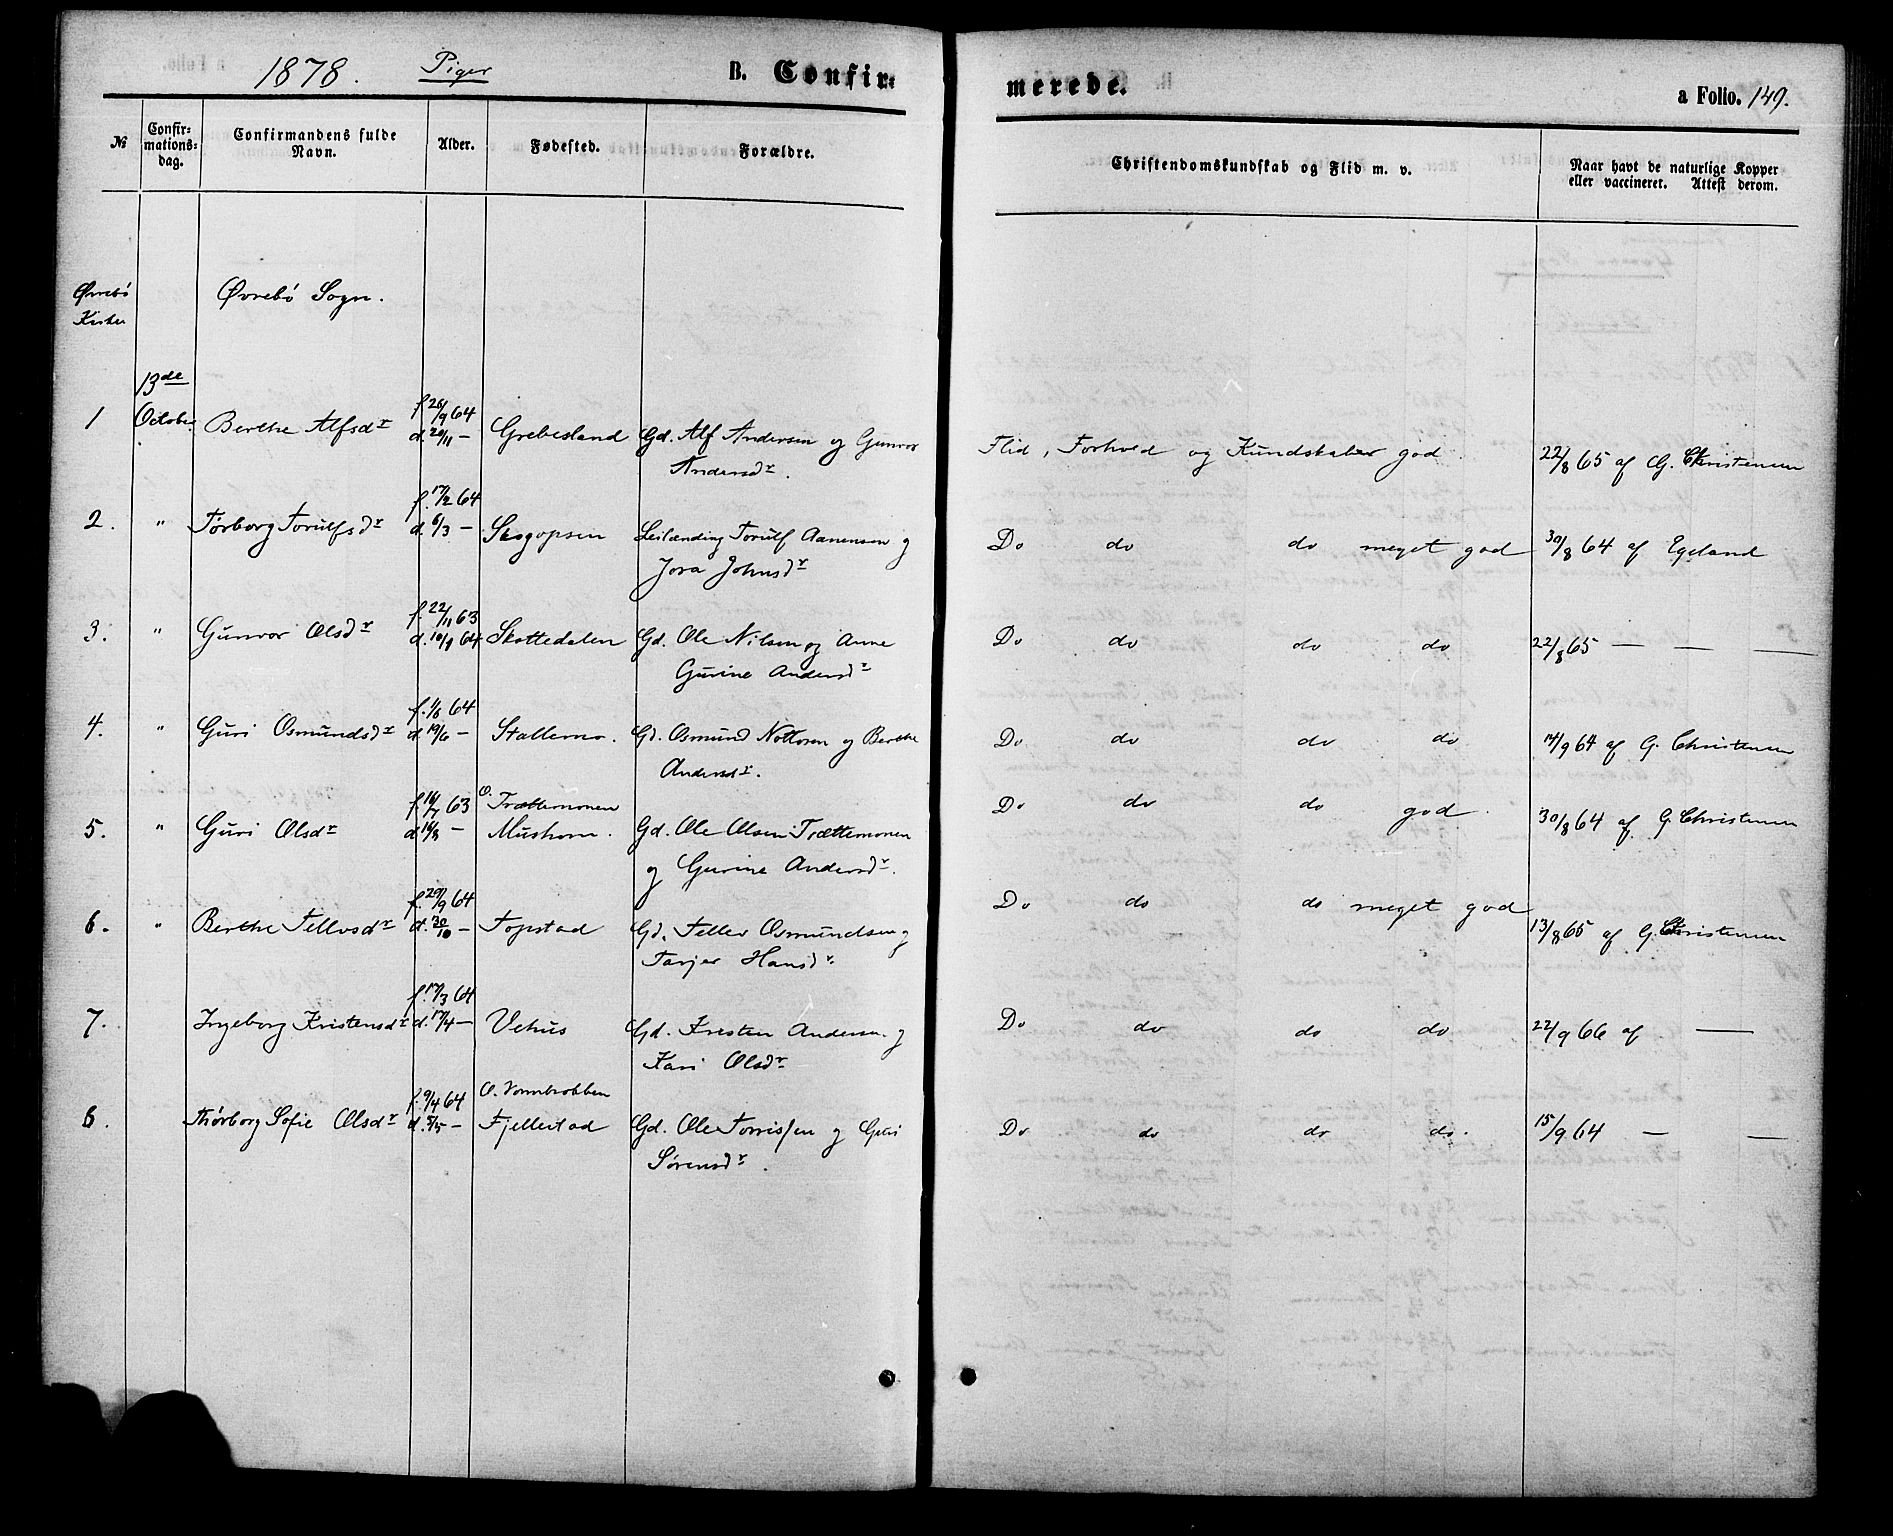 1878. Piger B. Confir= merede. a Folio. 149.
№ Confir=mations=dag. Confirmandens fulde Navn. Alder. Fødested. Forældre. Christendomskundskab og Flid m. v. Naar havt de naturlige Kopper eller vaccineret. Attest derom.
Øvrebø Øvrebö Sogn.
13de
1 October Berthe Alfsdr f. 26/9 64 Grebesland Gd. Alf Andersen og Gunvor Flid, Forhold og Kundskaber god. 22/8 65 af G. Christensen
d. 20/11 – Andersdr.
2. " Törborg Torulfsdr f. 17/2 64 Skogopsen Leilænding Torulf Aanensen og Do do do meget god 30/8 64 af Egeland
d. 6/3 – Jora Johnsdr
3. " Gunvor Olsdr f. 22/11 63 Skottedalen Gd. Ole Nilsen og Anne Do do do do 22/8 65 — — —
d. 10/1 64 Gurine Andersdr
4. " Guri Osmundsdr f. 1/6 64 Gd. Osmund og Berthe Do do do do 14/9 64 af G. Christensen
d. 19/6 – Andersdr.
5. " Guri Olsdr f. 63 O. Trættemonen Do do do god. 30/8 64 af G. Christensen
d. 16/8 – Mushom. Gd. Ole Olsen Trættemonen
og Gurine Andersdr.
6. " Berthe Tellevsdr f. 29/9 64 Topstad Gd. Tellev Osmundsen og Do do do meget god 13/8 65 af G. Christensen
d. 30/10 – Tarjer Hansdr
7. Ingeborg Kristensdr f. 17/3 64 Vehus Gd. Kristen Andersen og Do do do do 22/9 66 af —
d. 17/4 – Kari Olsdr
8. Thörborg Sofie Olsdr f. 9/4 64 O. Vombrokken
d. 5/5 – Fjellestad Gd. Ole Torrissen og Guri Do do do do. 15/9 64 — —
Sörensdr.